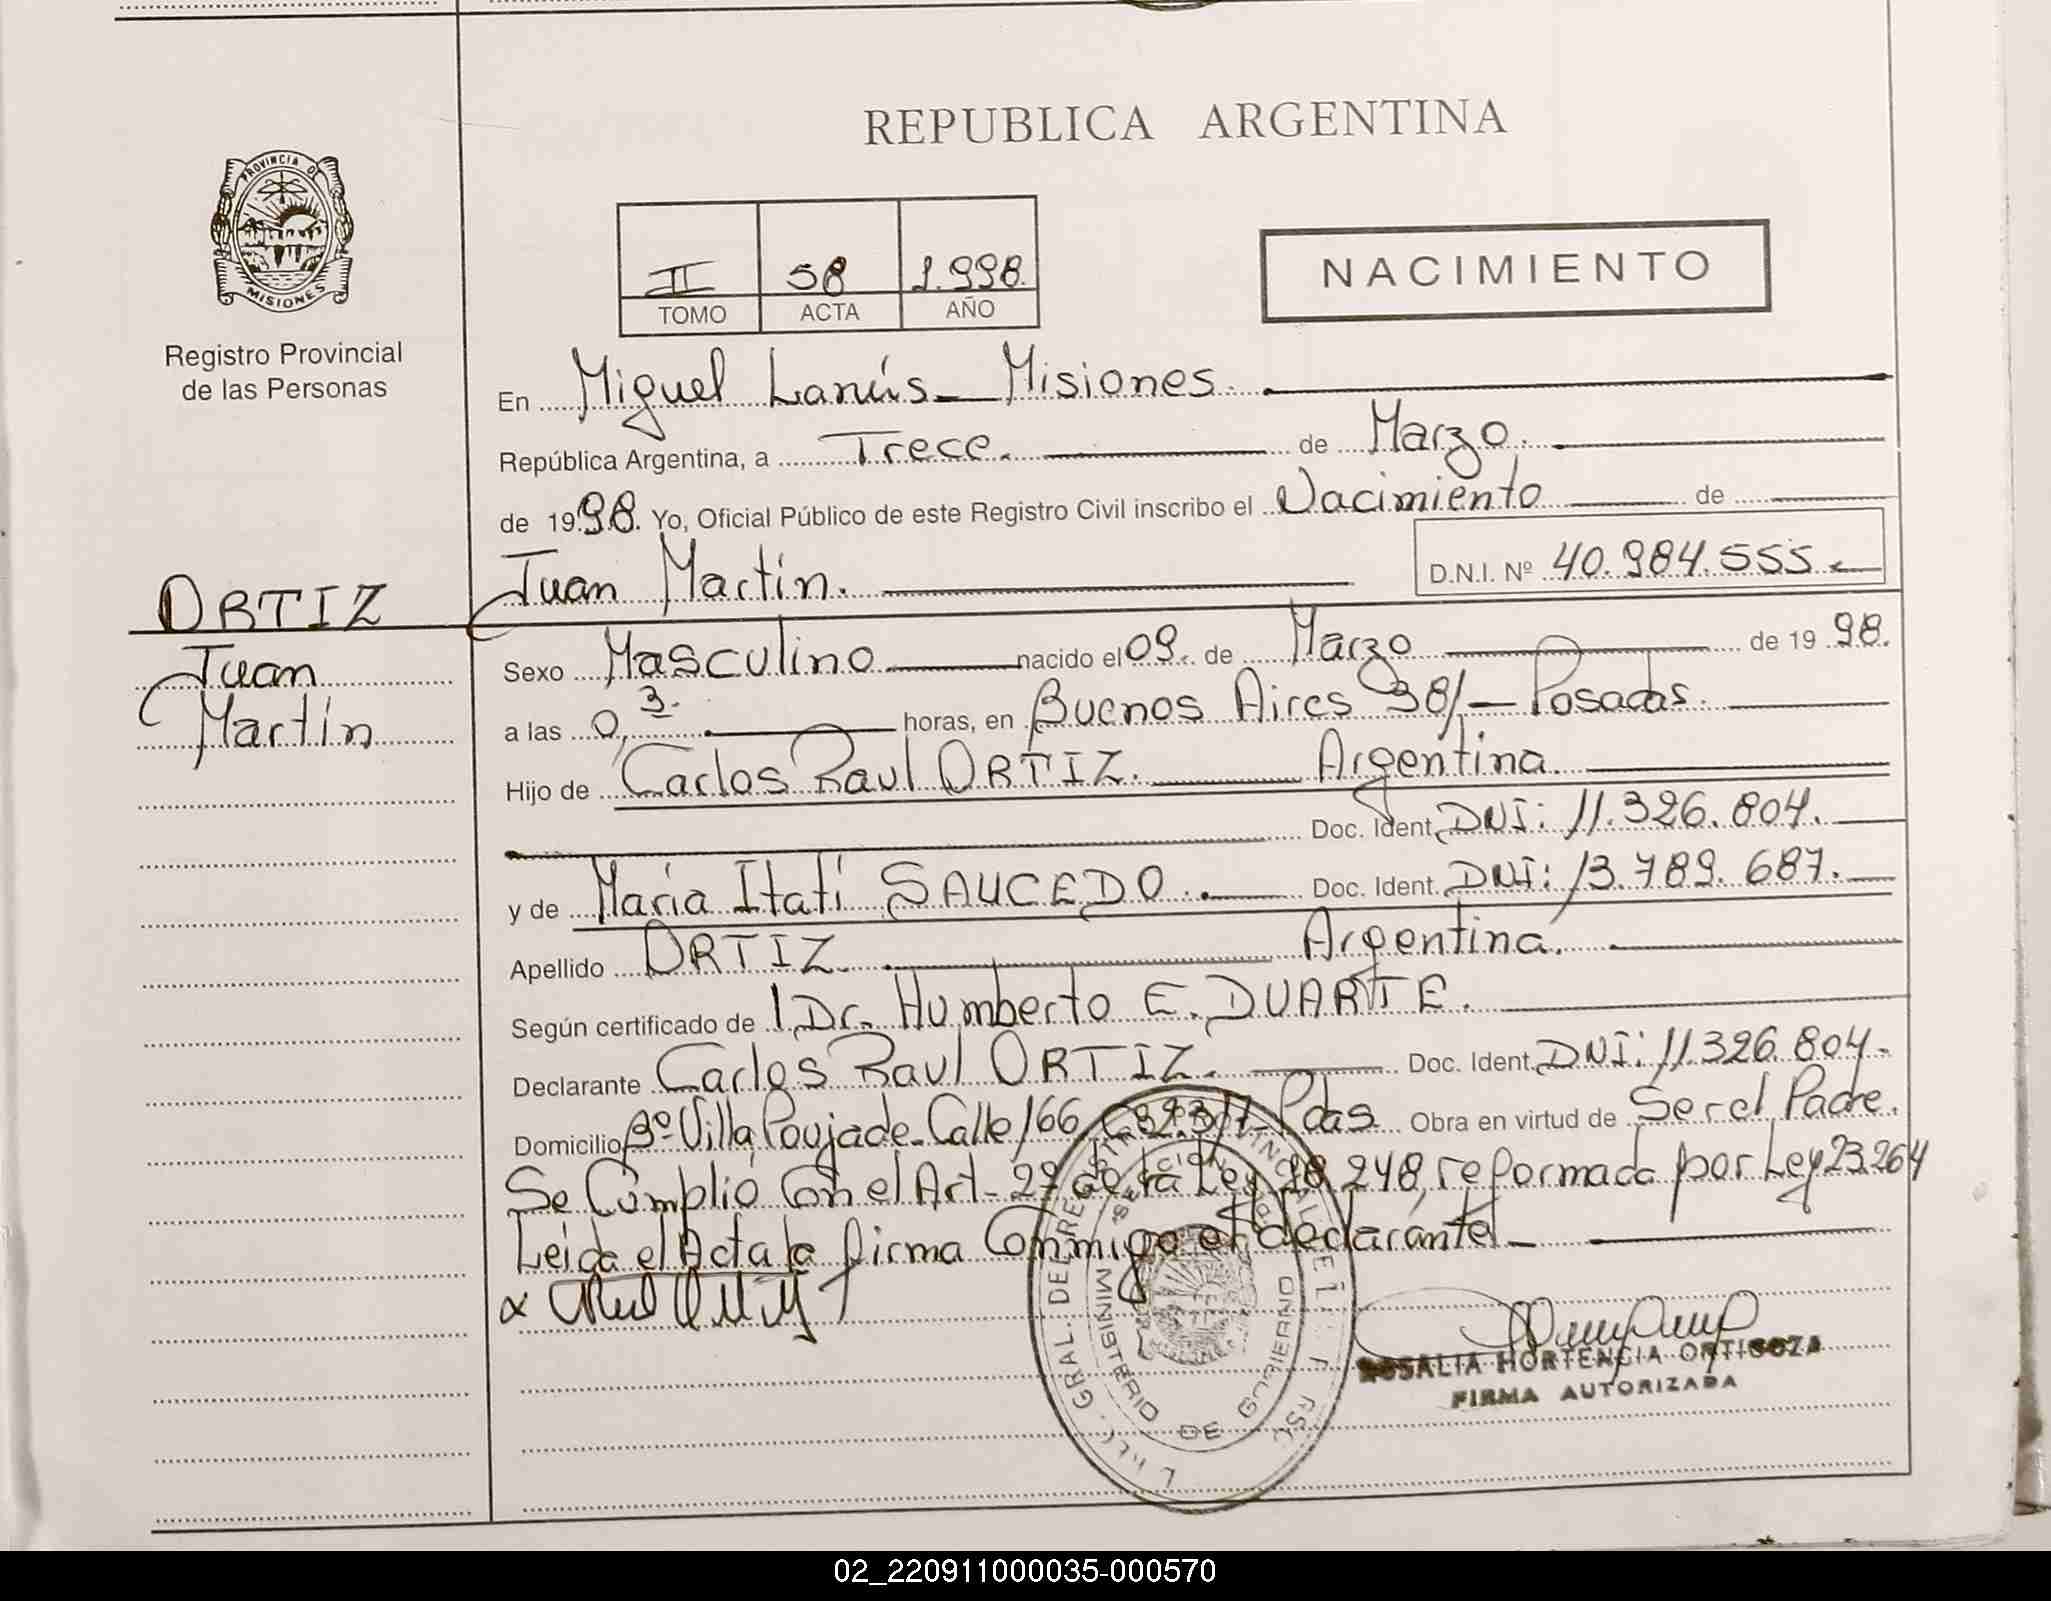 REPUBLICA ARGENTINA
PROVINCIA DE
MISIONES
Registro Provincial
de las Personas
II 58 1.998.
TOMO ACTA AÑO
NACIMIENTO
En Miguel Lanús - Misiones.
República Argentina, a Trece. de Marzo.
de 1998. Yo, Oficial Público de este Registro Civil inscribo el Nacimiento de
Juan Martín. D.N.I. Nº 40.984.555.-
ORTIZ
Juan
Martín
Sexo Masculino nacido el 09. de Marzo de 1998.
a las 0,3. horas, en Buenos Aires 38/- Posadas.
Hijo de Carlos Raul ORTIZ. Argentina.
Doc. Ident. DNI: 11.326.804.
y de María Itatí SAUCEDO. Doc. Ident. DNI: 13.789.687.
Apellido ORTIZ. Argentina.
Según certificado de 1 Dr. Humberto E. DUARTE.
Declarante Carlos Raul ORTIZ. Doc. Ident. DNI: 11.326.804.
Domicilio Bº Villa Poujade. Calle 166 Pdas Obra en virtud de Ser el Padre.
Se Cumplió Con el Art- 2º de la Ley 18.248, reformada por Ley 23.264
Leida el Acta la firma Conmigo el declarante.
ROSALIA HORTENCIA ORTIGOZA
FIRMA AUTORIZADA
MINISTERIO DE GOBIERNO
02_220911000035-000570